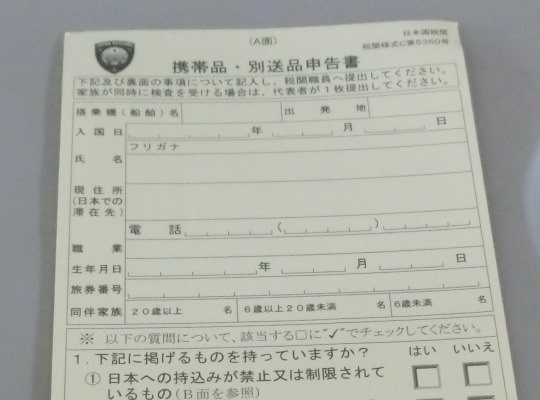 (A面)
日本国税関
税関様式C第5360号
携帯品・別送品申告書
下記及び裏面の事項について記入し、税関職員へ提出してください。
家族が同時に検査を受ける場合は、代表者が1枚提出してください。
搭乗機(船舶)名 出発地
入国日 年 月 日
フリガナ
氏名
現住所
(日本での
滞在先)
電話 ( )
職業
生年月日 年 月 日
旅券番号
同伴家族 20歳以上 名 6歳以上20歳未満 名 6歳未満 名
※ 以下の質問について、該当する□に"✓"でチェックしてください。
1.下記に掲げるものを持っていますか? はい いいえ
① 日本への持込みが禁止又は制限されて
いるもの(B面を参照)